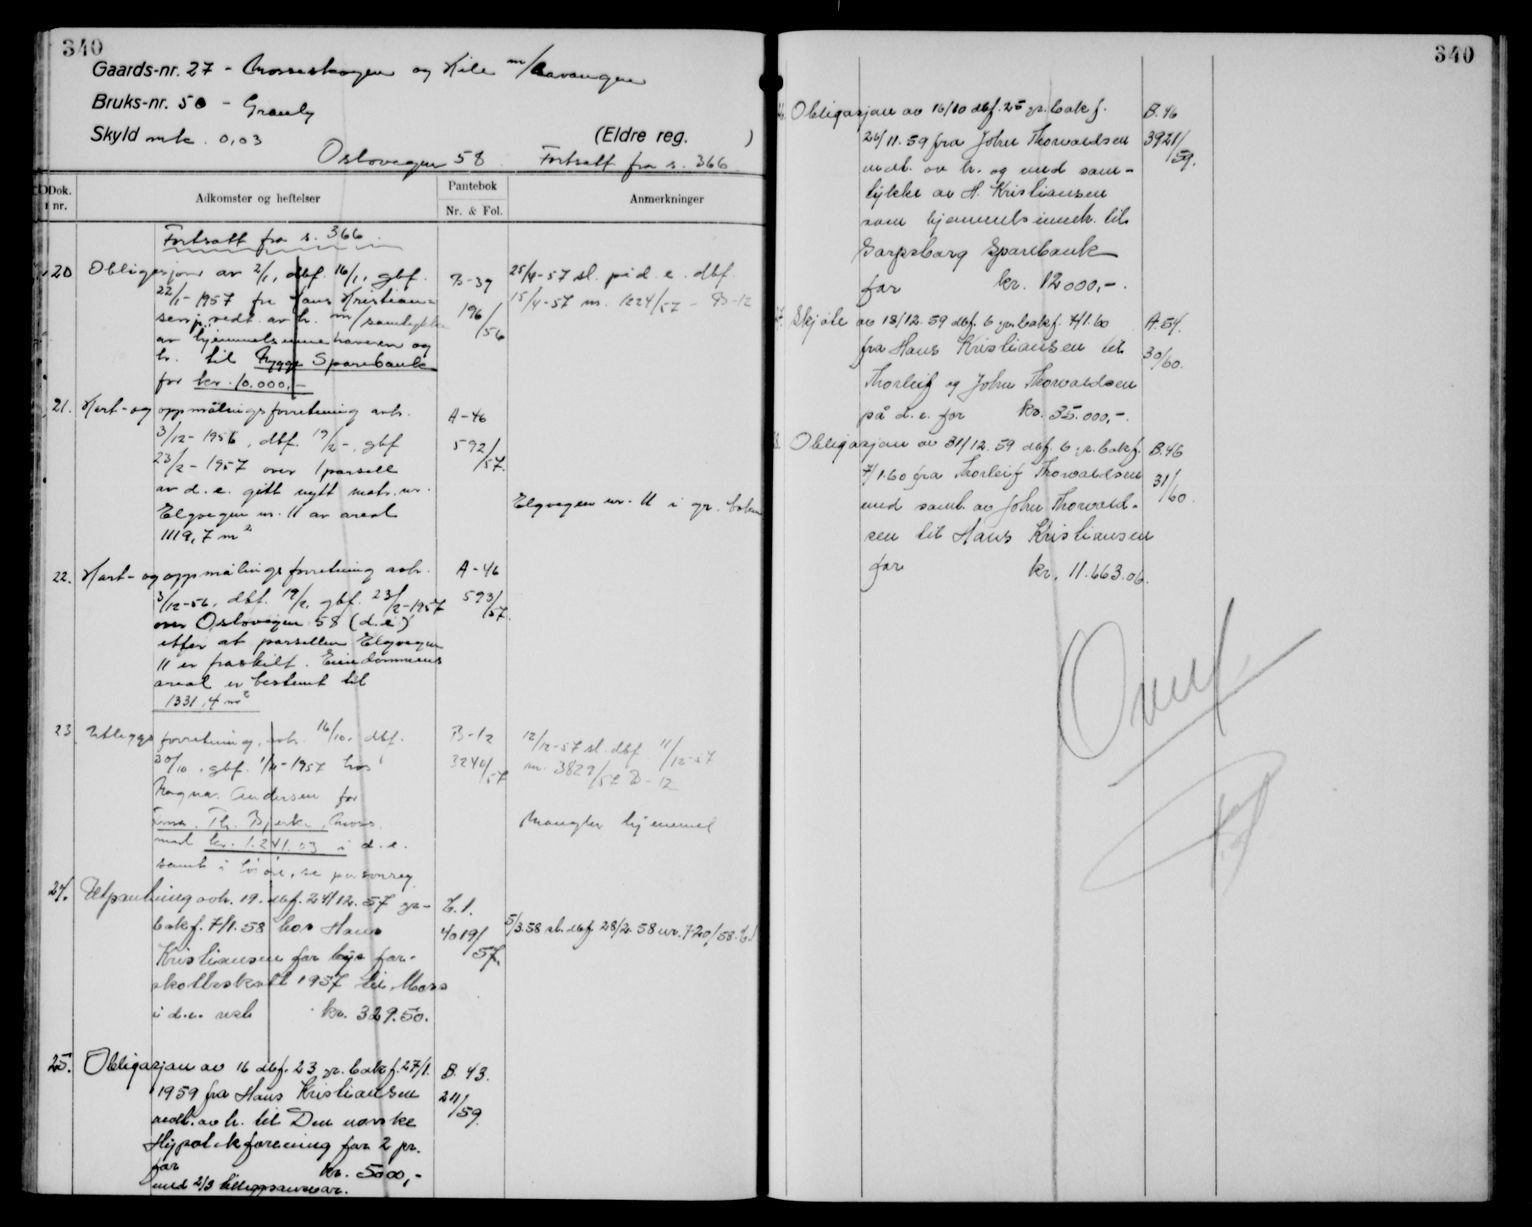 340
Gaards-nr. 27 - Mosseskogen og Kile m/ Aavangen
Bruks-nr. 50 - Granly
Skyld mk. 0,03 (Eldre reg. )
Oslovegen 58 Fortsatt fra s. 366
Dok. nr.
Adkomster og heftelser
Pantebok
Nr. & Fol.
Anmerkninger
Fortsatt fra s. 366.
20 Obligasjon av 2/1, dbf. 16/1, gbf. B-39 25/4-57 sl. på d.e. dbf.
22/1-1957 fra Hans Kristian- 196/56 15/4-57 nr. 1224/57 - B-12
sen, vedt. av h. m/samtykke
av hjemmelsinnehaveren og
h. til Rygge Sparebank
for kr. 10.000,-
21. Kart- og oppmålingsforretning avh. A-46
3/12-1956, dbf. 19/2-, gbf 592/57.
23/2-1957 over 1 parsell
av d.e. gitt nytt matr. nr.
Elgvegen nr. 11 av areal Elgvegen nr. 11 i gr. boken
1119,7 m²
22. Kart- og oppmålingsforretning avh. A-46
3/12-56, dbf. 19/2, gbf. 23/2-1957 593/57.
over Oslovegen 58 (d.e.)
etter at parsellen Elgvegen
11 er fraskilt. Eiendommens
areal er bestemt til
1331,4 m²
23 Utleggsforretning, avh. 16/10, dbf. B-12 12/12-57 sl. dbf. 11/12-57
30/10, gbf. 1/11-1957 hos 3240/57 nr. 3829/57 B-12
Ragnar Andersen for
Firma Th. Bjerke, Moss Mangler hjemmel
med kr. 1.241.03 i d.e.
samt i løsøre, se personreg.
24. Utpantning avh. 19. dbf. 24/12.57 gr- B.1.
bokf. 7/1.58 hos Hans 4019/57. 5/3.58 sl. dbf 28/2.58 nr. 720/58.
Kristiansen for bye for-
skottsskatt 1957 til Moss
i d.e. med kr. 329.50.
25. Obligasjon av 16 dbf. 23 gr. bokf. 27/1. B. 43.
1959 fra Hans Kristiansen 241/59.
vedt. av h. til Den norske
Hypotekforening for 2 pr.
for kr. 5000,-
med 2/3 tilleggsansvar.
340
Obligasjon av 16/10 dbf. 25 gr. bokf. B. 46
26/11.59 fra John Thorvaldsen 3921/59.
vedt. av h. og med sam-
tykke av H. Kristiansen
som hjemmelsinneh. til
Sarpsborg Sparebank
for kr. 12000,-.
Skjøte av 18/12.59 dbf. 6 gr. bokf. 7/1.60 A. 54.
fra Hans Kristiansen til 30/60.
Thorleif og John Thorvaldsen
på d.e. for kr. 35.000,-.
Obligasjon av 31/12.59 dbf. 6 gr. bokf. B. 46
7/1.60 fra Thorleif Thorvaldsen 31/60.
med samt. av John Thorvald-
sen til Hans Kristiansen
for kr. 11.663.06.